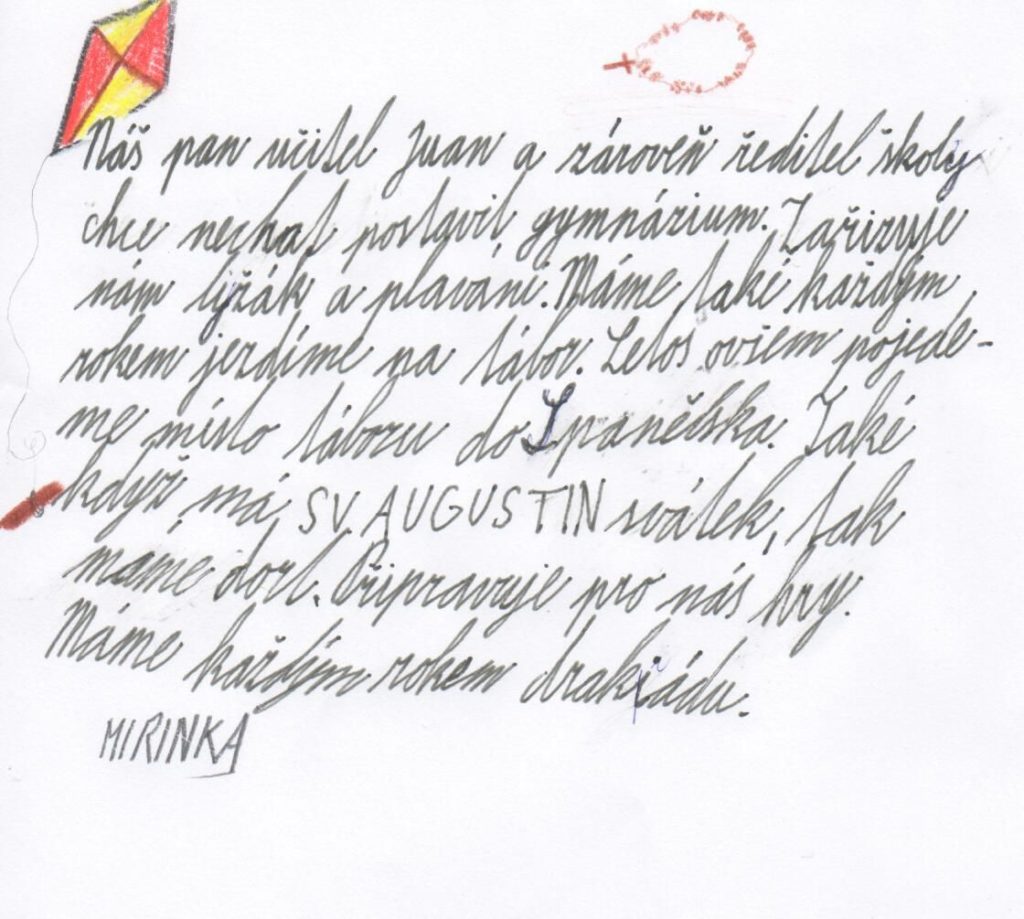 Náš pan učitel Juan a zároveň ředitel školy
chce nechat postavit gymnázium. Zařizuje
nám lyžák a plavání. Máme také každým
rokem jezdíme na tábor. Letos ovšem pojede-
me místo táboru do Španělska. Také
když má SV. AUGUSTIN svátek, tak
máme dort. Připravuje pro nás hry.
Máme každým rokem drakiádu.
MIRINKA